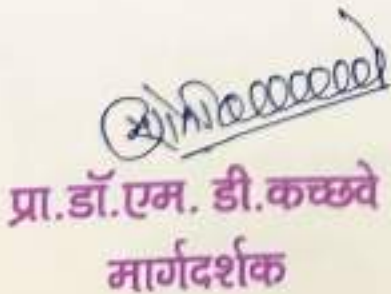 प्रा.डॉ.एम. डी.कच्छवे
मार्गदर्शक